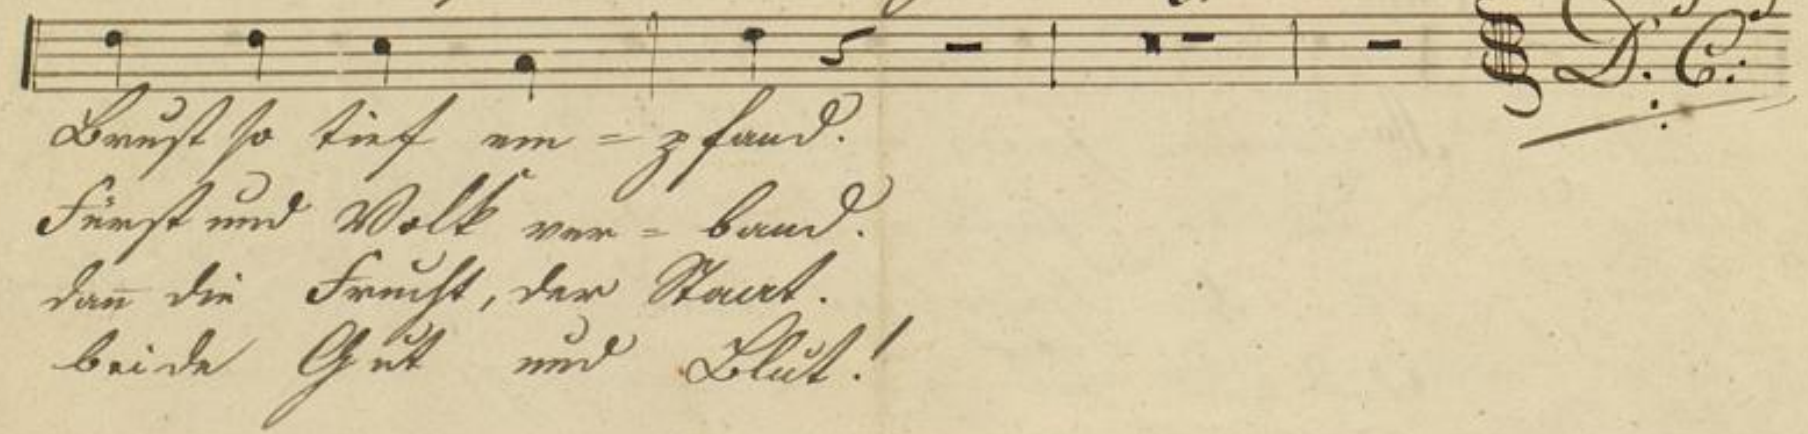 D. C.
Brust so tief em = pfand.
Fürst und Volk ver = band.
dan̄ die Frucht, der Staat.
beide Gut und Blut!